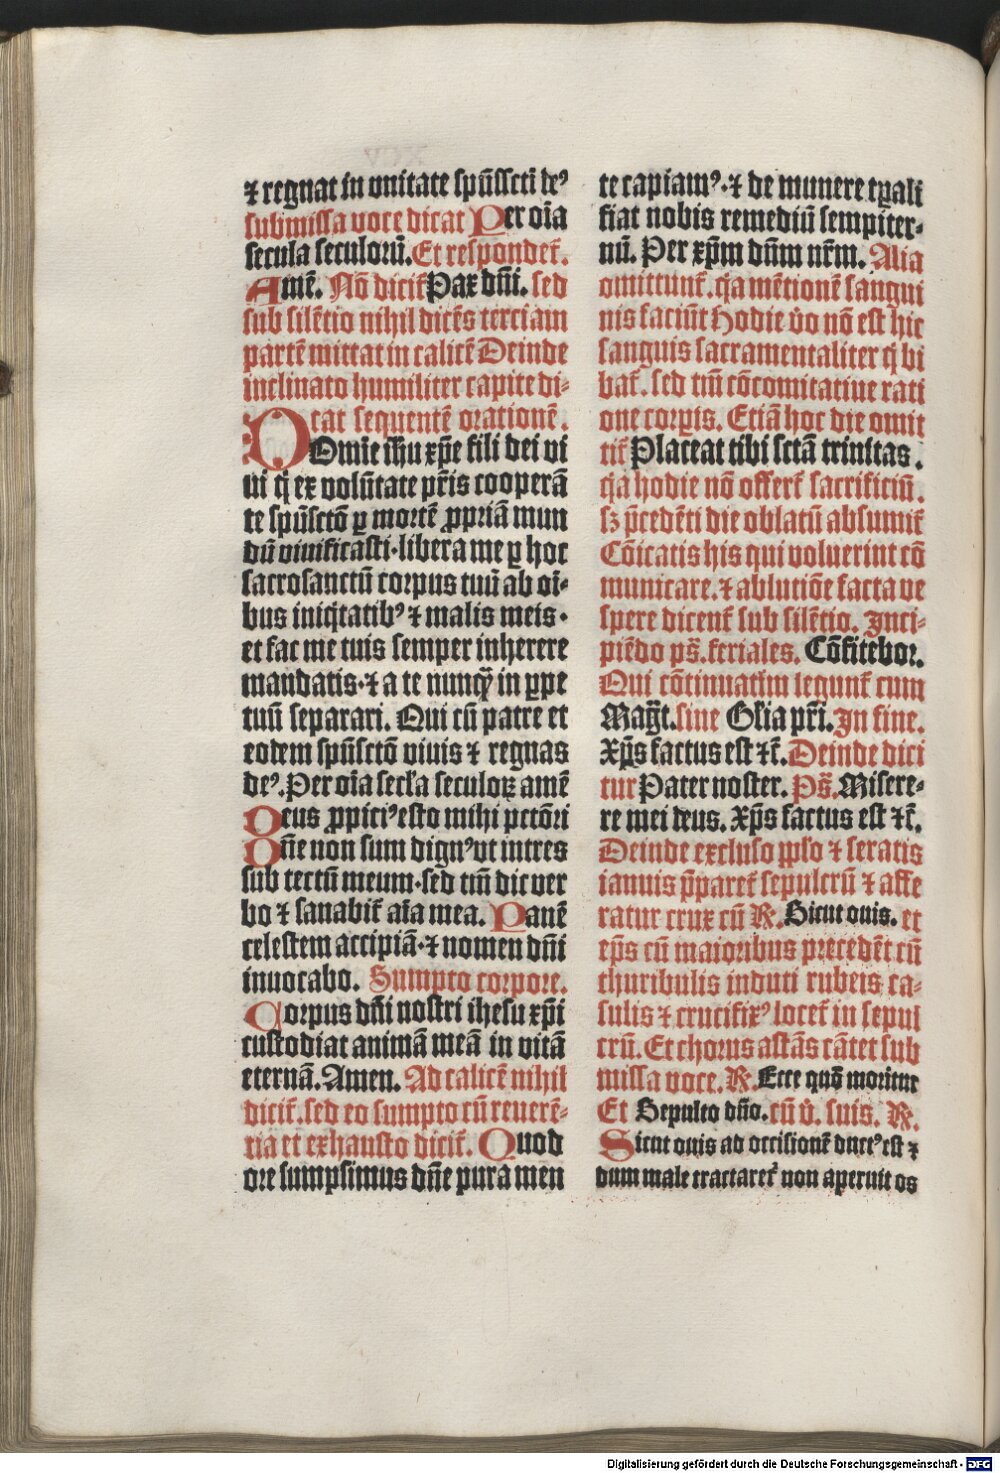 ⁊ regnat in vnitate spūssctī deꝰ
submissa voce dicat Per oīa
secula seculorū. Et respondet̄.
Amē. Nō dicit̄ Pax dn̄i. sed
sub silētio nihil dicēs terciam
partē mittat in calicē Deinde
inclinato humiliter capite di-
cat sequentē orationē.
Domīe ihu xp̄e fili dei vi
ui q̄ ex volūtate pr̄is cooperā
te spūsctō ꝑ mortē ꝓpriā mun
dū viuificasti. libera me ꝑ hoc
sacrosanctū corpus tuū ab oī-
bus iniq̄tatibꝰ ⁊ malis meis.
et fac me tuis semper inherere
mandatis. ⁊ a te nunqꝫ in ꝑpe
tuū separari. Qui cū patre et
eodem spūsctō viuis ⁊ regnas
deꝰ. Per oīa secl̄a seculoꝝ amē
Deus ꝓpiciꝰ esto mihi pctōri
Dn̄e non sum dignꝰ vt intres
sub tectū meum. sed tm̄ dic ver
bo ⁊ sanabit̄ aīa mea. Panē
celestem accipiā. ⁊ nomen dn̄i
inuocabo. Sumpto corpore.
Corpus dn̄i nostri ihesu xp̄i
custodiat animā meā in vitā
eternā. Amen. Ad calicē nihil
dicit̄. sed eo sumpto cū reuerē-
ria et exhausto dicit̄. Quod
ore sumpsimus dn̄e pura men
te capiamꝰ. ⁊ de munere tꝑali
fiat nobis remediū sempiter-
nū. Per xp̄m dn̄m nr̄m. Alia
omittunt̄. q̄a mētionē sangui
nis faciūt Hodie v̄o nō est hic
sanguis sacramentaliter q̄ bi
bat̄. sed tm̄ cōcomitatiue rati
one corpis. Etiā hoc die omit
tit̄ Placeat tibi sctā trinitas.
q̄a hodie nō offert̄ sacrificiū.
sꝫ p̄cedēti die oblatū absumit̄
Cōicatis his qui voluerint cō
municare. ⁊ ablutiōe facta ve
spere dicent̄ sub silētio. Inci-
piēdo ps̄. feriales. Cōfitebor.
Qui cōtinuatim legunt̄ cum
Magt̄. sine Gl̄ia pr̄i. In fine.
Xp̄s factus est ⁊c̄. Deinde dici
tur Pater noster. Ps̄. Misere-
re mei deus. Xp̄s factus est ⁊c̄.
Deinde excluso pp̄lo ⁊ seratis
ianuis p̄paret̄ sepulcrū ⁊ affe
ratur crux cū ℟. Sicut ouis. et
ep̄s cū maioribus precedēt cū
thuribulis induti rubeis ca-
sulis ⁊ crucifixꝰ locet̄ in sepul
crū. Et chorus astās cātet sub
missa voce. ℟. Ecce quō moritur
Et Sepulto dn̄o. cū v̄. suis. ℟.
Sicut ouis ad occisionē ductꝰ est ⁊
dum male tractaret̄ non aperuit os
Digitalisierung gefördert durch die Deutsche Forschungsgemeinschaft - DFG